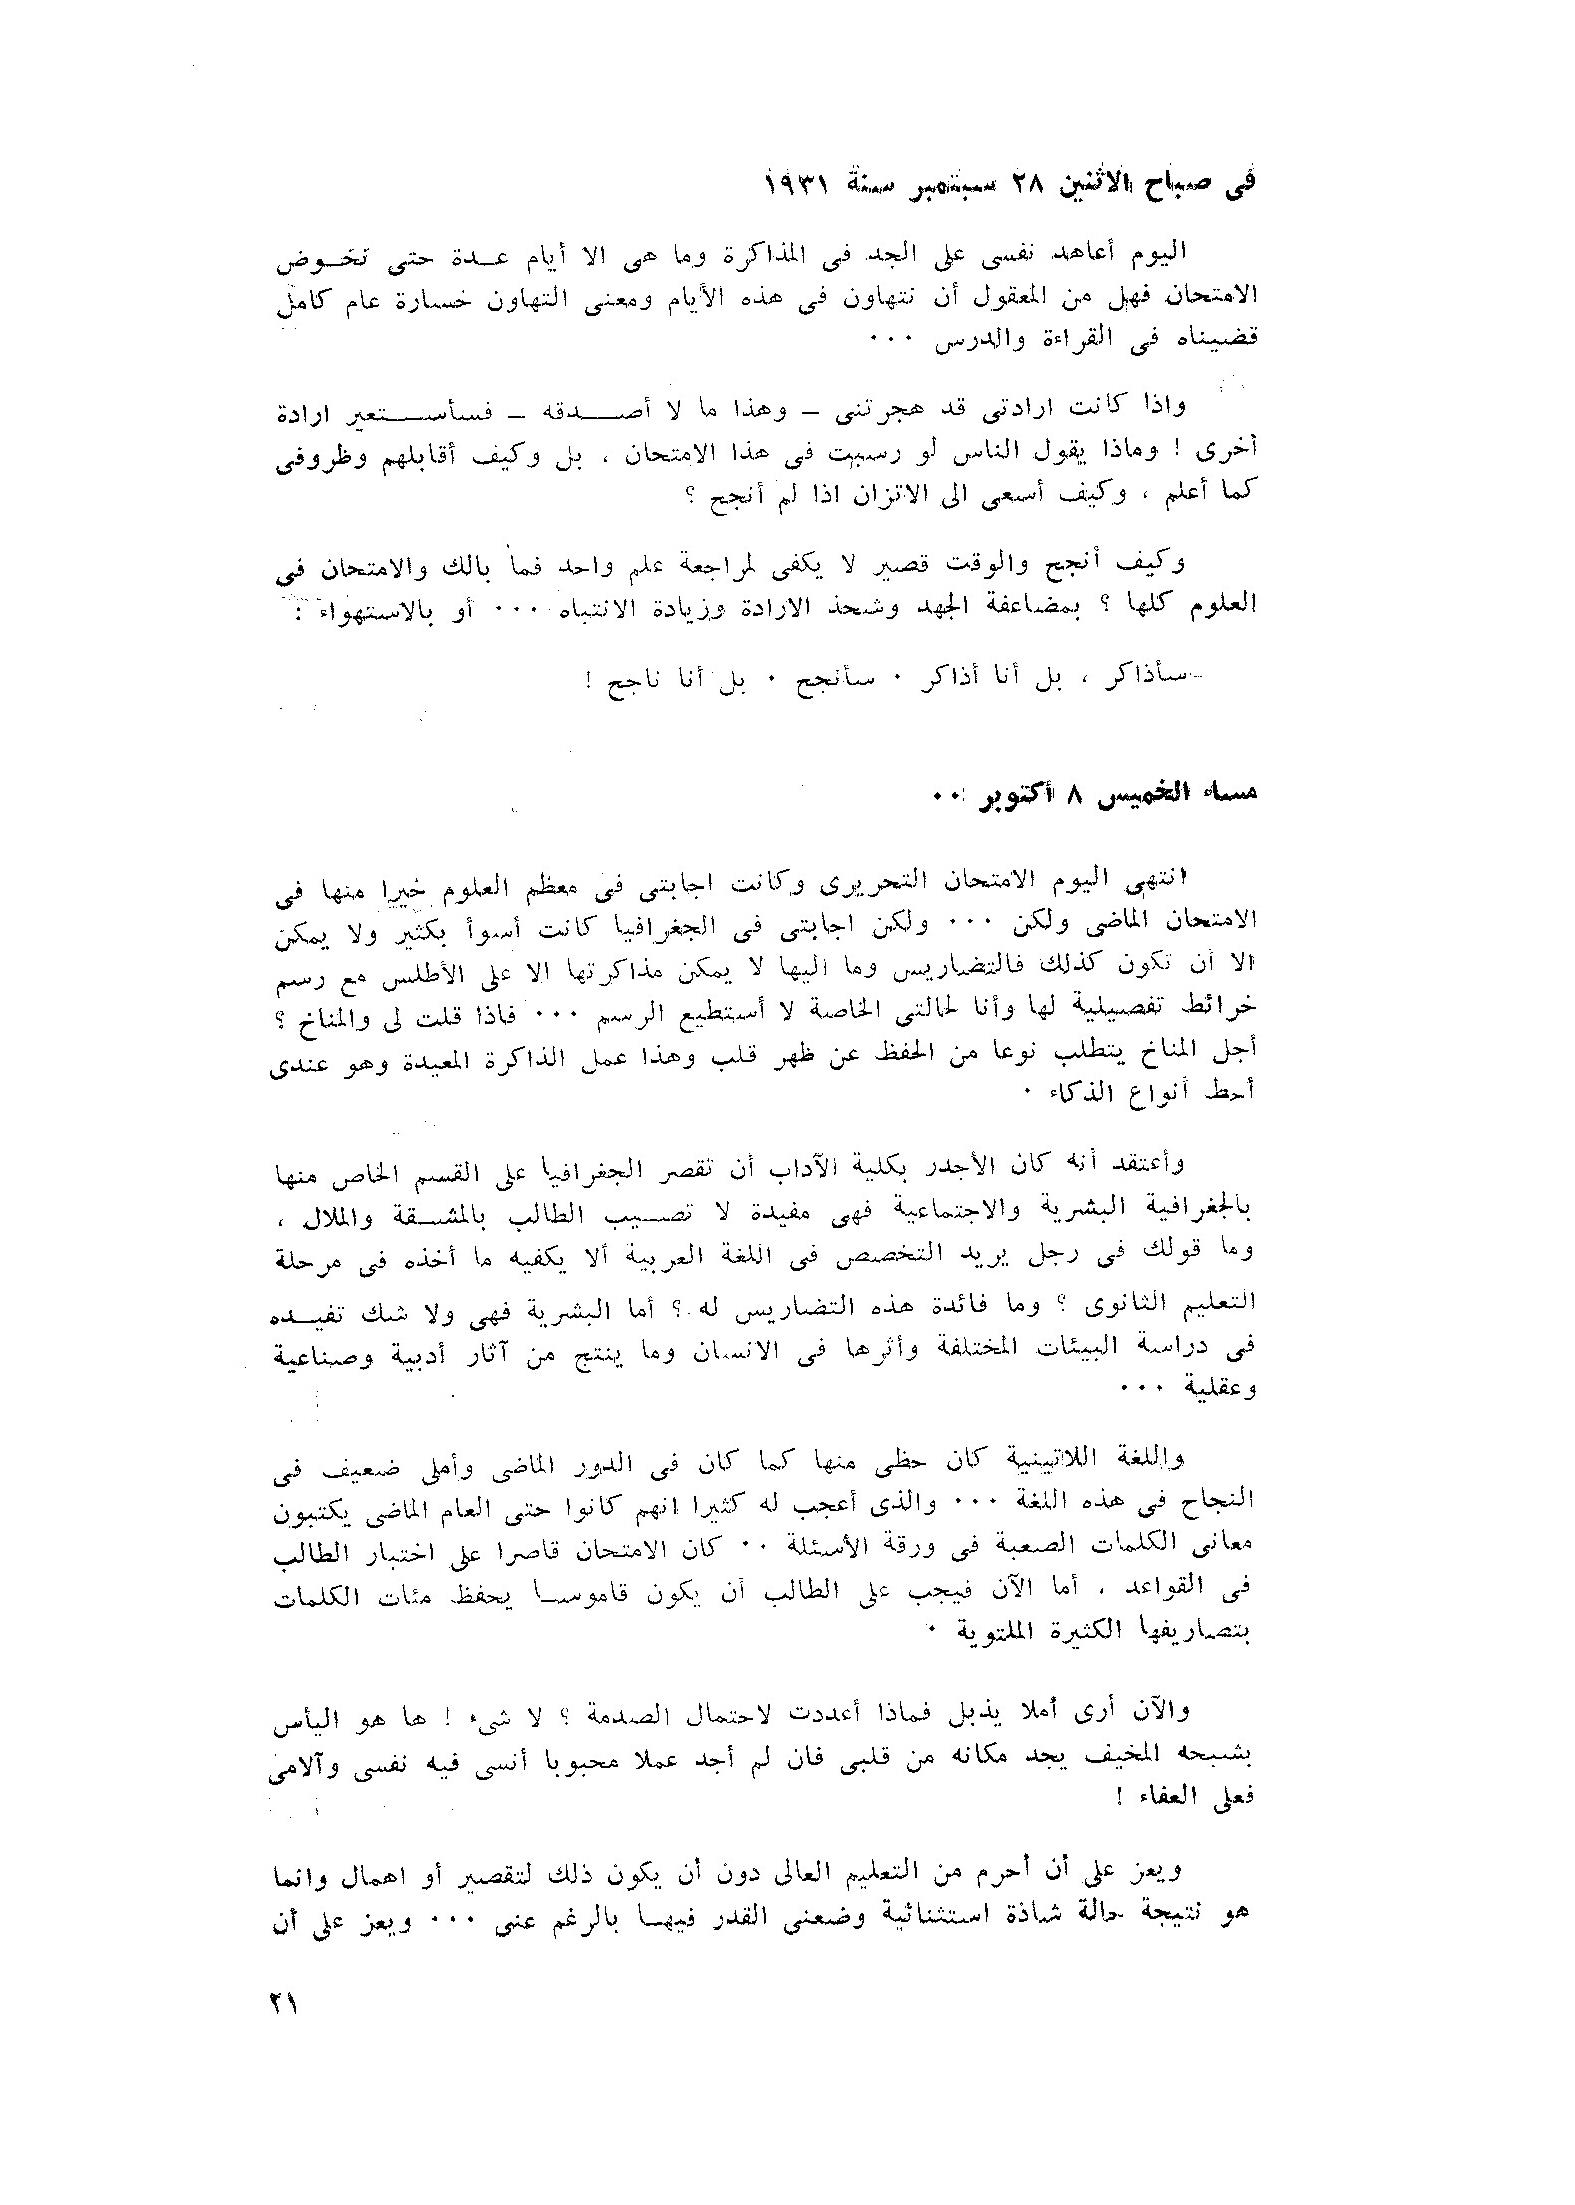 فى صباح الاثنين ٢٨ سبتمبر سنة ١٩٣١
اليوم أعاهد نفسى على الجد فى المذاكرة وما هى الا أيام عدة حتى نخوض
الامتحان فهل من المعقول أن نتهاون فى هذه الأيام ومعنى التهاون خسارة عام كامل
قضيناه فى القراءة والدرس ٠٠٠
واذا كانت ارادتى قد هجرتنى – وهذا ما لا أصدقه – فسأستعير ارادة
أخرى ! وماذا يقول الناس لو رسبت فى هذا الامتحان ، بل وكيف أقابلهم وظروفى
كما أعلم ، وكيف أسعى الى الاتزان اذا لم أنجح ؟
وكيف أنجح والوقت قصير لا يكفى لمراجعة علم واحد فما بالك والامتحان فى
العلوم كلها ؟ بمضاعفة الجهد وشحذ الارادة وزيادة الانتباه ٠٠٠ أو بالاستهواء :
– سأذاكر ، بل أنا أذاكر ٠ سأنجح ٠ بل أنا ناجح !
مساء الخميس ٨ أكتوبر ٠٠
انتهى اليوم الامتحان التحريرى وكانت اجابتى فى معظم العلوم خيرا منها فى
الامتحان الماضى ولكن ٠٠٠ ولكن اجابتى فى الجغرافيا كانت أسوأ بكثير ولا يمكن
الا أن تكون كذلك فالتضاريس وما اليها لا يمكن مذاكرتها الا على الأطلس مع رسم
خرائط تفصيلية لها وأنا لحالتى الخاصة لا أستطيع الرسم ٠٠٠ فاذا قلت لى والمناخ ؟
أجل المناخ يتطلب نوعا من الحفظ عن ظهر قلب وهذا عمل الذاكرة المعيدة وهو عندى
أحط أنواع الذكاء ٠
وأعتقد أنه كان الأجدر بكلية الآداب أن تقصر الجغرافيا على القسم الخاص منها
بالجغرافية البشرية والاجتماعية فهى مفيدة لا تصيب الطالب بالمشقة والملال ،
وما قولك فى رجل يريد التخصص فى اللغة العربية ألا يكفيه ما أخذه فى مرحلة
التعليم الثانوى ؟ وما فائدة هذه التضاريس له ؟ أما البشرية فهى ولا شك تفيده
فى دراسة البيئات المختلفة وأثرها فى الانسان وما ينتج من آثار أدبية وصناعية
وعقلية ٠٠٠
واللغة اللاتينية كان حظى منها كما كان فى الدور الماضى وأملى ضعيف فى
النجاح فى هذه اللغة ٠٠٠ والذى أعجب له كثيرا انهم كانوا حتى العام الماضى يكتبون
معانى الكلمات الصعبة فى ورقة الأسئلة ٠٠ كان الامتحان قاصرا على اختبار الطالب
فى القواعد ، أما الآن فيجب على الطالب أن يكون قاموسا يحفظ مئات الكلمات
بتصاريفها الكثيرة الملتوية ٠
والآن أرى أملا يذبل فماذا أعددت لاحتمال الصدمة ؟ لا شىء ! ها هو اليأس
بشبحه المخيف يجد مكانه من قلبى فان لم أجد عملا محبوبا أنسى فيه نفسى وآلامى
فعلى العفاء !
ويعز على أن أحرم من التعليم العالى دون أن يكون ذلك لتقصير أو اهمال وانما
هو نتيجة حالة شاذة استثنائية وضعنى القدر فيها بالرغم عنى ٠٠٠ ويعز على أن
٢١